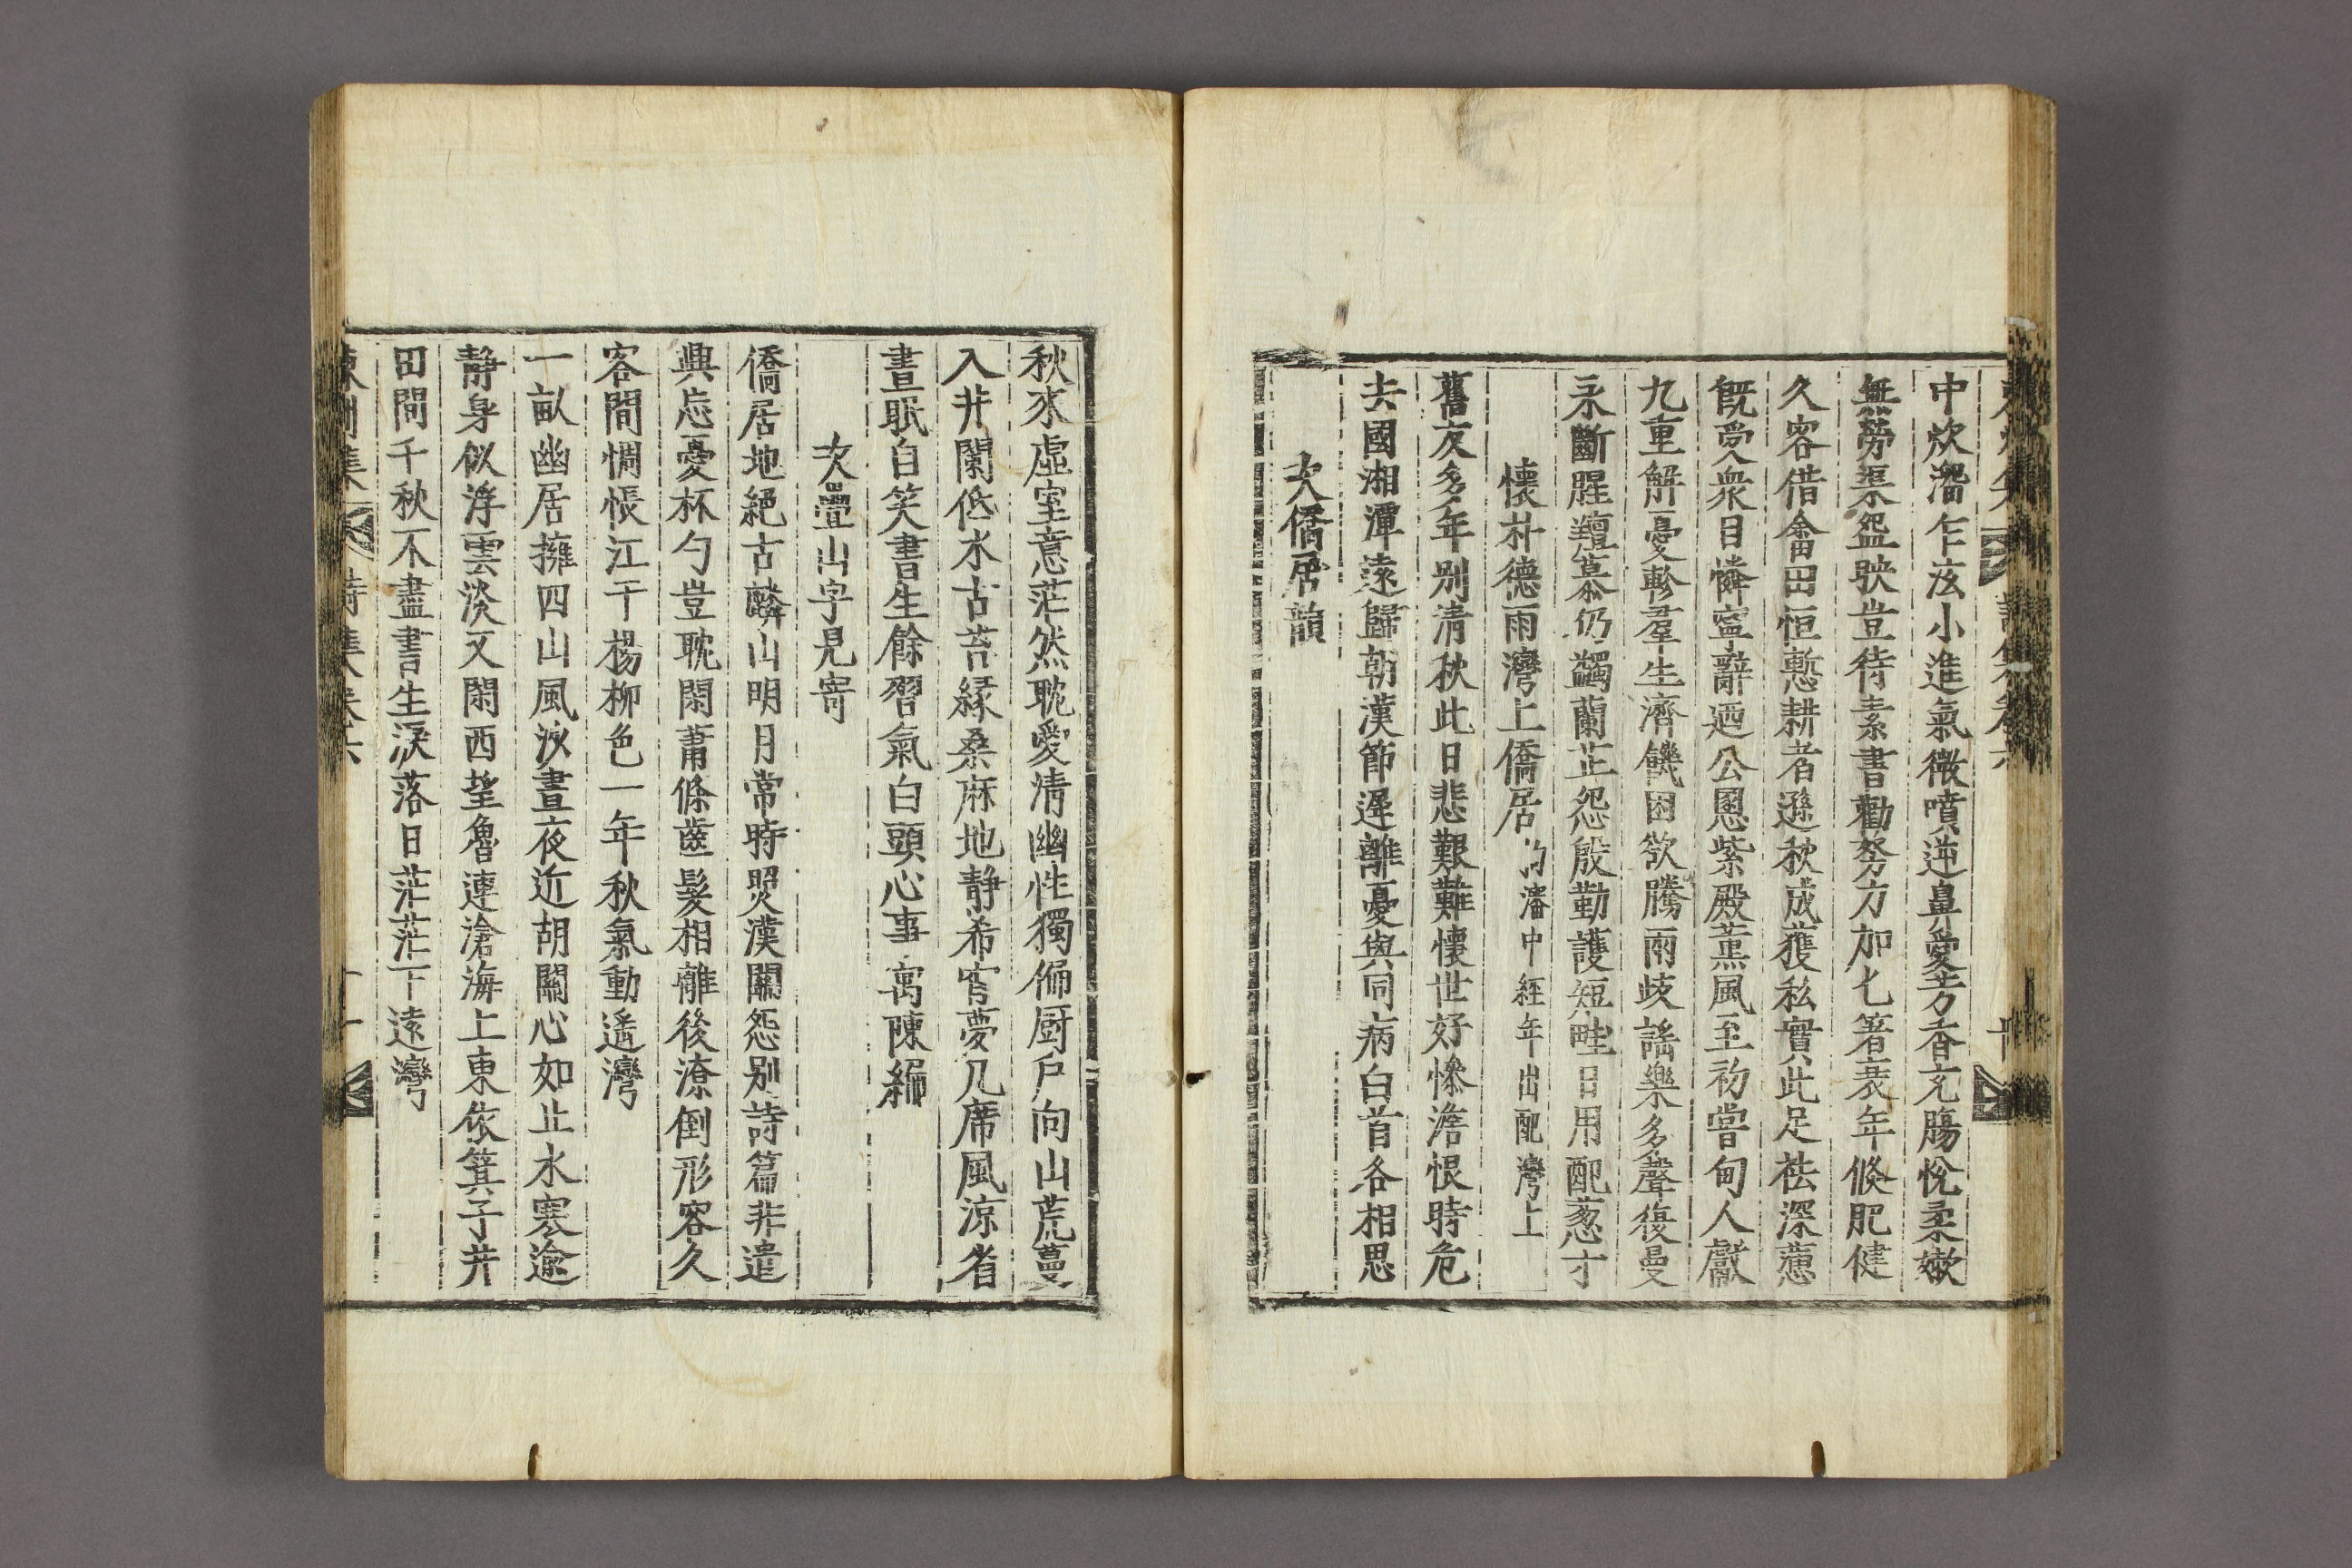 中炊溜乍泫小進氣微噴逆鼻愛芳香充膓悅柔嫰
無勞渠盌映豈待素書勸努力加匕箸衰年倐肥健
久客借畬田恒慙耕者遜秋成蒦私實此足祛深蔥
旣受衆目憐寧辭迺公慁紫殿薰風至初嘗甸人獻
九重解憂軫羣生濟饑困欲騰兩歧謠樂多聲復曼
永斷腥羶慕仍蠲蘭芷怨殷勤護短畦日用配葱寸
懷朴德雨灣上僑居 瀋中經年出配灣上
舊友多年别淸秋此日悲艱難懷世好慘澹恨時危
去國湘潭遠歸朝漢節遲離憂與同病白首各相思
次僑居韻
秋來虛室意茫然耽愛淸幽性獨偏厨戶向山荒蔓
入井闌低水古苔緣桑麻地靜希窅夢几席風凉省
晝眠自笑書生餘習氣白頭心事寓陳編
次疊山字見寄
僑居地絕古麟山明月常時照漢關怨别詩篇非遣
興忘憂杯勺豈耽閑蕭條齒髮相離後潦倒形容久
客間惆悵江干楊柳色一年秋氣動遙灣
一畝幽居擁四山風湌晝夜近胡關心如止水寒逾
靜身似浮雲淡又閑西望魯連滄海上東依箕子井
田間千秋不盡書生淚落日茫茫下遠灣
東州集 詩集卷六 十一